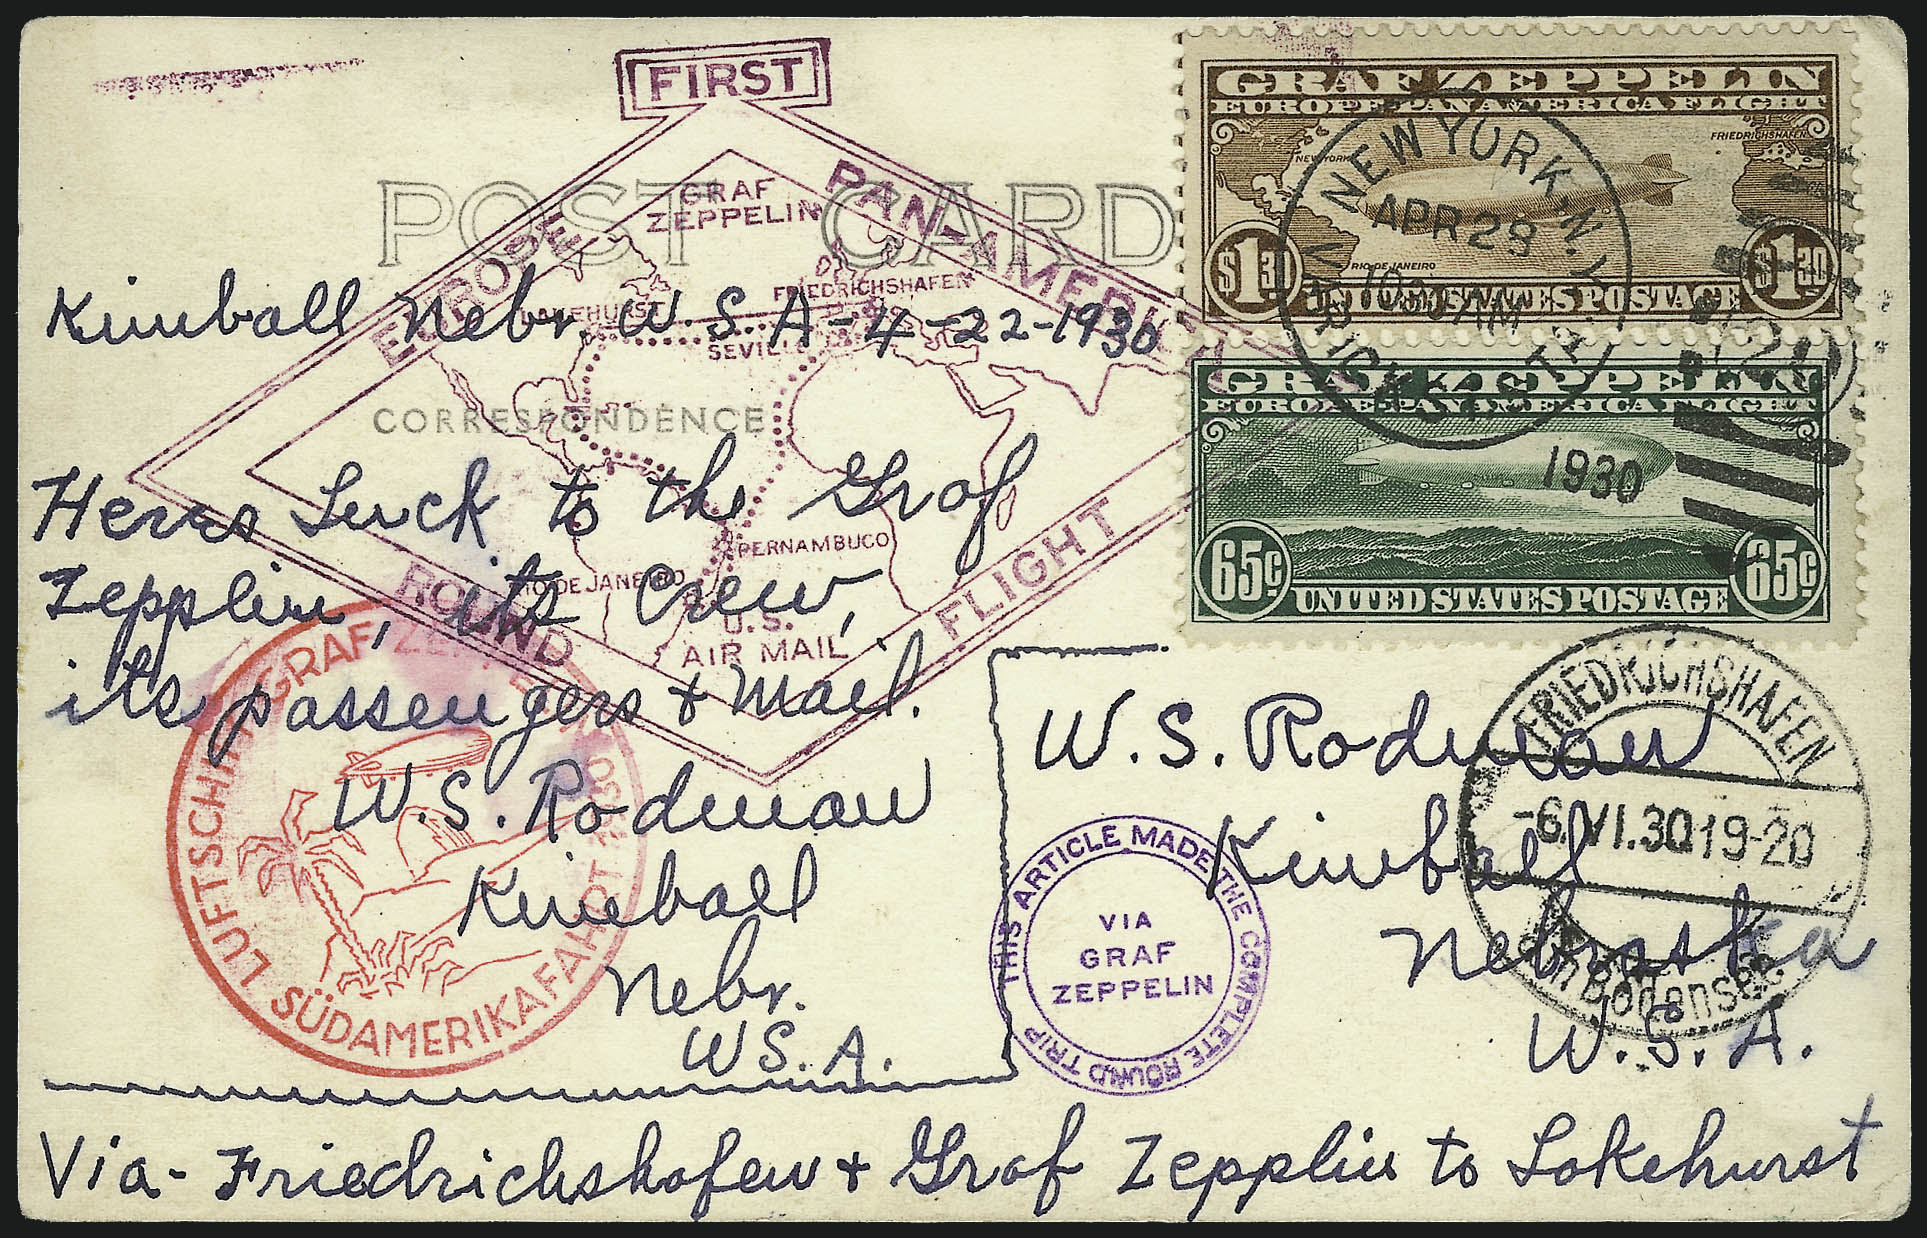 FIRST
EUROPE PAN-AMERICA
ROUND FLIGHT
GRAF
ZEPPELIN
LAKEHURST
FRIEDRICHSHAFEN
SEVILLE
PERNAMBUCO
RIO DE JANEIRO
U.S.
AIR MAIL
POST CARD
CORRESPONDENCE
GRAF ZEPPELIN
EUROPE PAN AMERICA FLIGHT
NEW YORK
FRIEDRICHSHAFEN
RIO DE JANEIRO
$1.30 UNITED STATES POSTAGE $1.30
GRAF ZEPPELIN
EUROPE PAN AMERICA FLIGHT
65c UNITED STATES POSTAGE 65c
NEW YORK, N.Y.
APR 28
1030 AM
1930
Kimball Nebr. U.S.A-4-22-1930
Heres Luck to the Graf
Zepplin, its Crew,
its passengers + Mail.
W.S. Rodman
Kimball
Nebr.
U.S.A.
LUFTSCHIFF GRAF ZEPPELIN
SÜDAMERIKAFAHRT 1930
THIS ARTICLE MADE THE COMPLETE ROUND TRIP
VIA
GRAF
ZEPPELIN
W. S. Rodman
Kimball
Nebraska
U. S. A.
FRIEDRICHSHAFEN
-6.VI.30 19-20
Bodensee
Via - Friedrichshafen + Graf Zepplin to Lakehurst